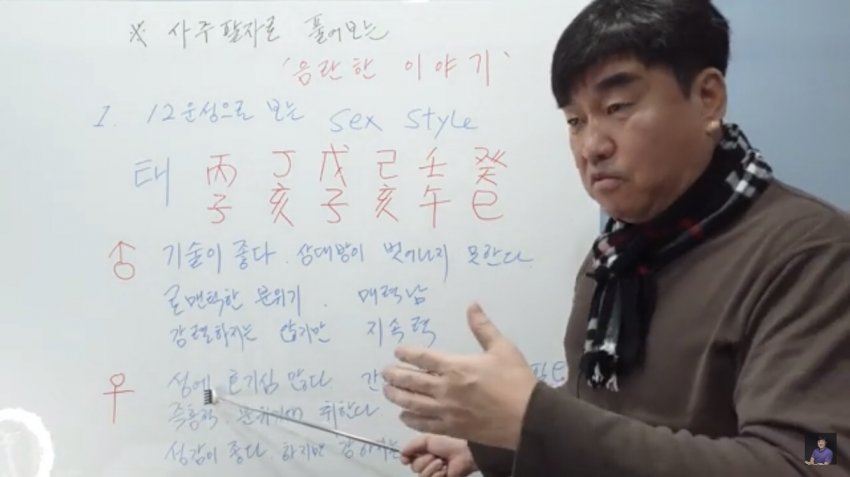 ※ 사주팔자로 풀어보는
'음란한 이야기'
I. 12운성으로 보는 sex style
태 丙 丁 戊 己 壬 癸
子 亥 子 亥 午 巳
♂ 기술이 좋다. 상대방이 벗어나지 못한다.
로맨틱한 분위기. 매력남
강렬하지는 않지만 지속력
♀ 성에 호기심 많다
즉흥적 분위기에 취한다
성감이 좋다. 하지만 강하지는